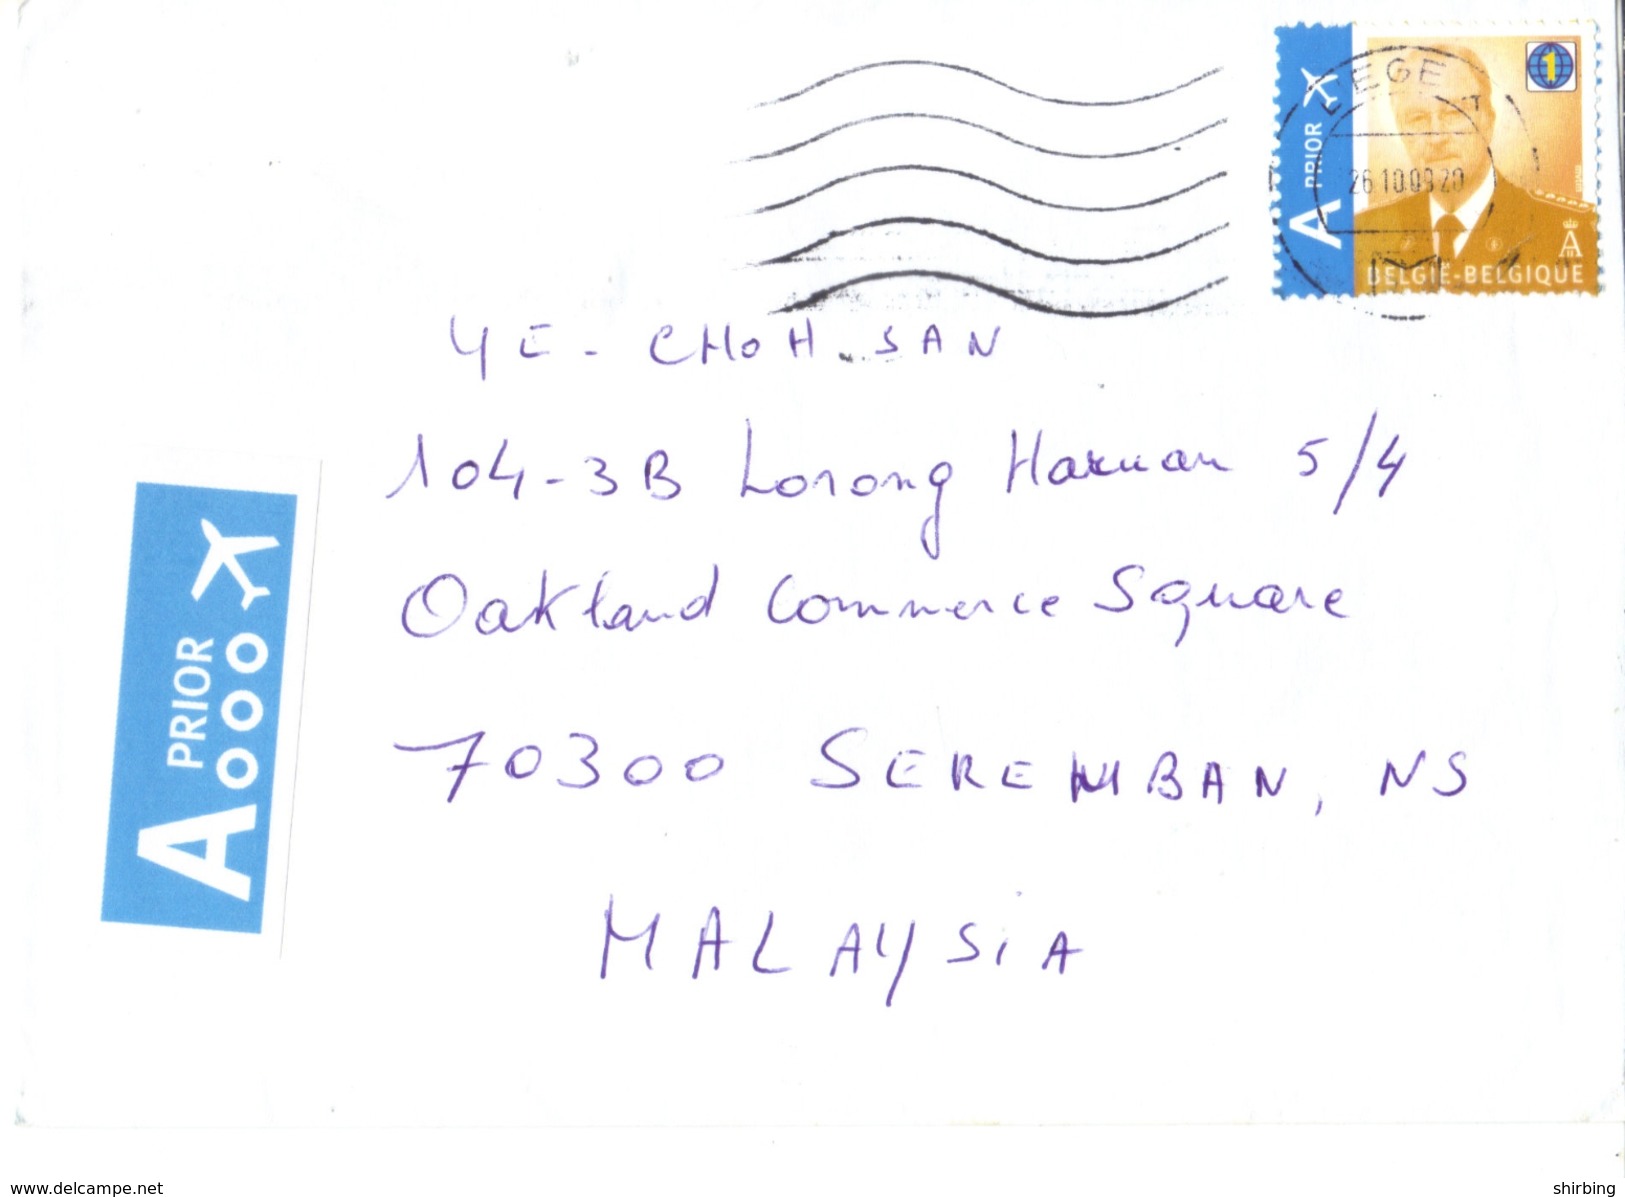 LIEGE
26 10.09 20
A PRIOR
1
BELGIË-BELGIQUE
YE - CHOH SAN
104-3B Lorong Haruan 5/4
Oakland Commerce Square
70300 SEREMBAN, NS
MALAYSiA
A PRIOR
www.delcampe.net
shirbing